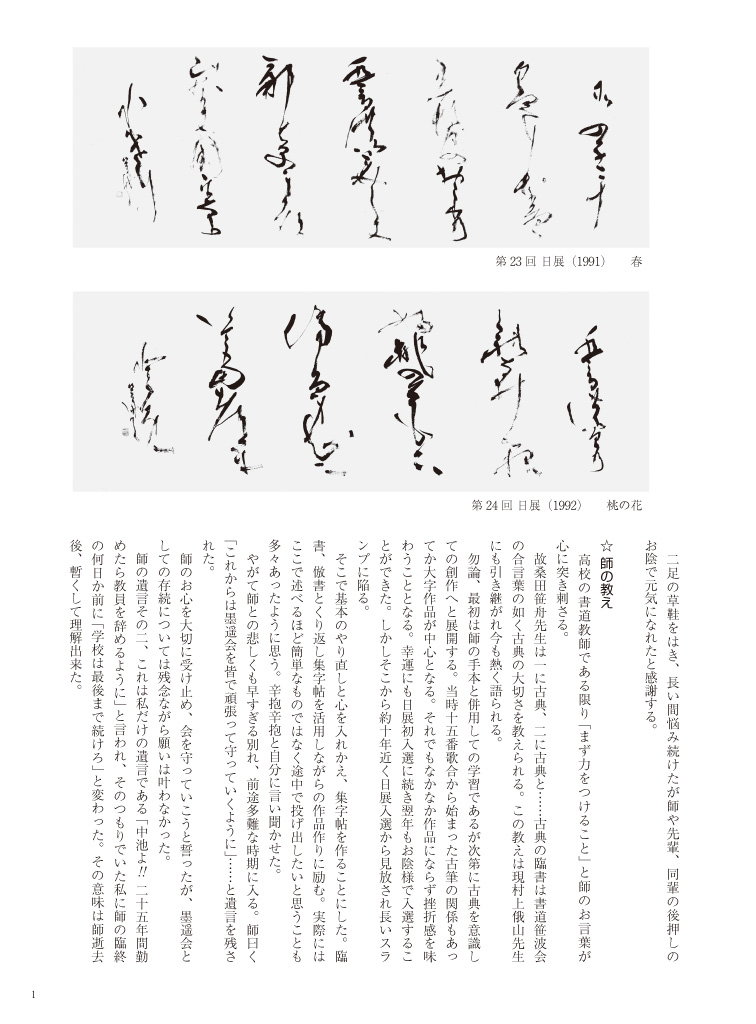 第23回 日展（1991）　春
第24回 日展（1992）　桃の花
二足の草鞋をはき、長い間悩み続けたが師や先輩、同輩の後押しの
お陰で元気になれたと感謝する。
☆ 師の教え
高校の書道教師である限り「まず力をつけること」と師のお言葉が
心に突き刺さる。
故桑田笹舟先生は一に古典、二に古典と……古典の臨書は書道笹波会
の合言葉の如く古典の大切さを教えられる。この教えは現村上俄山先生
にも引き継がれ今も熱く語られる。
勿論、最初は師の手本と併用しての学習であるが次第に古典を意識し
ての創作へと展開する。当時十五番歌合から始まった古筆の関係もあっ
てか大字作品が中心となる。それでもなかなか作品にならず挫折感を味
わうこととなる。幸運にも日展初入選に続き翌年もお陰様で入選するこ
とができた。しかしそこから約十年近く日展入選から見放され長いスラ
ンプに陥る。
そこで基本のやり直しと心を入れかえ、集字帖を作ることにした。臨
書、倣書とくり返し集字帖を活用しながらの作品作りに励む。実際には
ここで述べるほど簡単なものではなく途中で投げ出したいと思うことも
多々あったように思う。辛抱辛抱と自分に言い聞かせた。
やがて師との悲しくも早すぎる別れ、前途多難な時期に入る。師曰く
「これからは墨遥会を皆で頑張って守っていくように」……と遺言を残さ
れた。
師のお心を大切に受け止め、会を守っていこうと誓ったが、墨遥会と
しての存続については残念ながら願いは叶わなかった。
師の遺言その二、これは私だけの遺言である「中池よ!! 二十五年間勤
めたら教員を辞めるように」と言われ、そのつもりでいた私に師の臨終
の何日か前に「学校は最後まで続けろ」と変わった。その意味は師逝去
後、暫くして理解出来た。
1